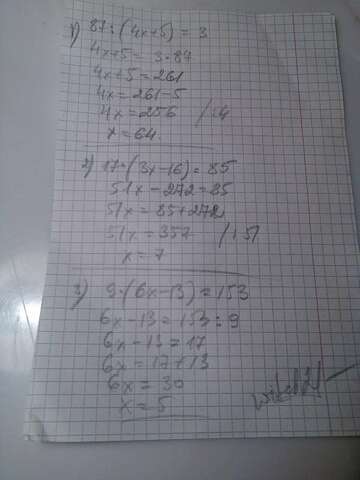 1) 87 : (4x+5) = 3
4x+5 = 3·87
4x+5 = 261
4x = 261-5
4x = 256 /:4
x = 64
2) 17·(3x-16) = 85
51x - 272 = 85
51x = 85+272
51x = 357 /:51
x = 7
3) 9·(6x-13) = 153
6x-13 = 153 : 9
6x-13 = 17
6x = 17+13
6x = 30
x = 5